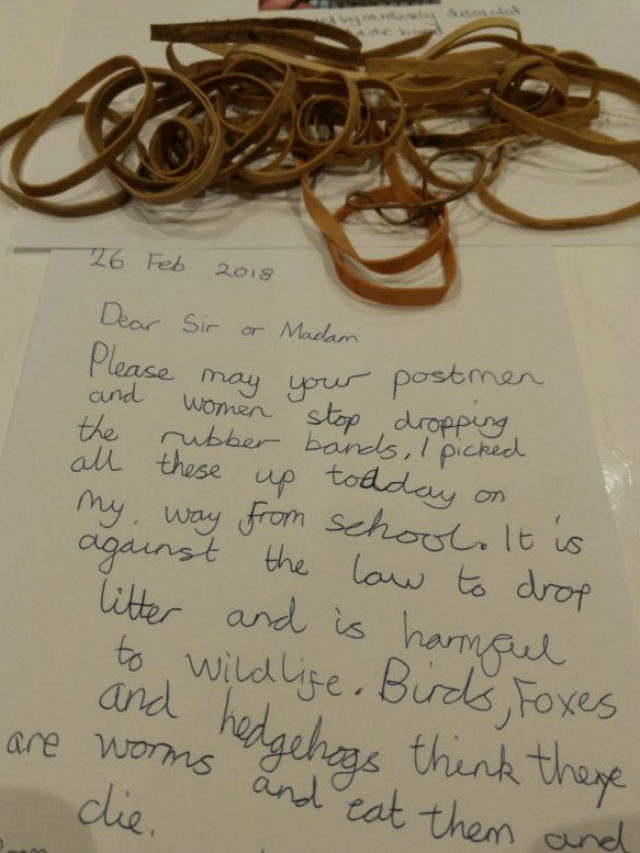 by carelessly discarded
band
26 Feb 2018
Dear Sir or Madam
Please may your postmen
and women stop dropping
the rubber bands, I picked
all these up today on
my way from school. It is
against the law to drop
litter and is harmful
to wildlife. Birds, Foxes
and hedgehogs think there
are worms and eat them and
die.